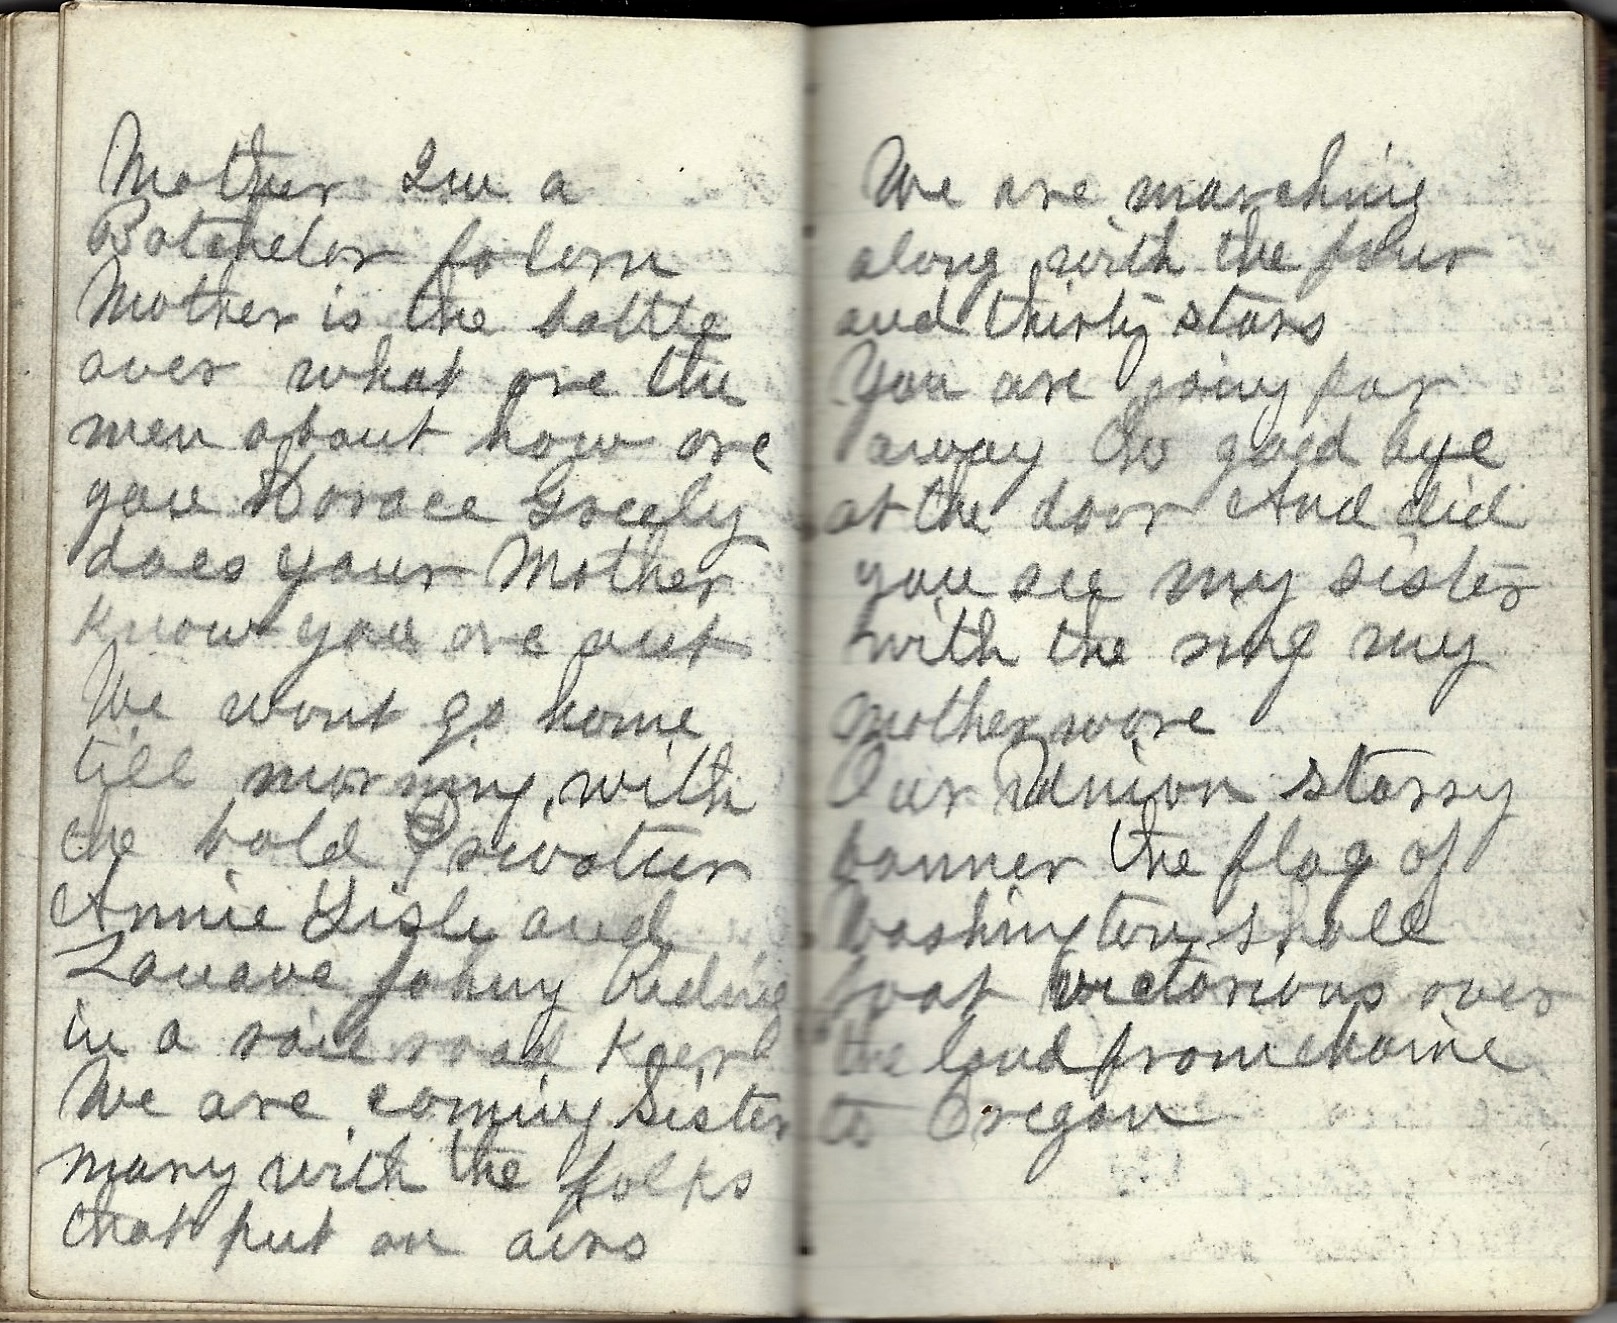 Mother Im a
Batchelor folorn
Mother is the battle
over what are the
men about how are
you Horace Greely
does your Mother
know you are out
We wont go home
till morning with
the bold Privatier
Annie Lisle and
Zouave Johny Riding
in a rail road Keer
We are coming Sister
mary with the folks
that put on airs
We are marching
along with the four
and thirty stars
You are going far
away Oh good bye
at the door And did
you see my sister
with the ring my
mother wore
Our Union starry
banner the flag of
Washington shall
foat victorious over
the land from maine
to Oregon